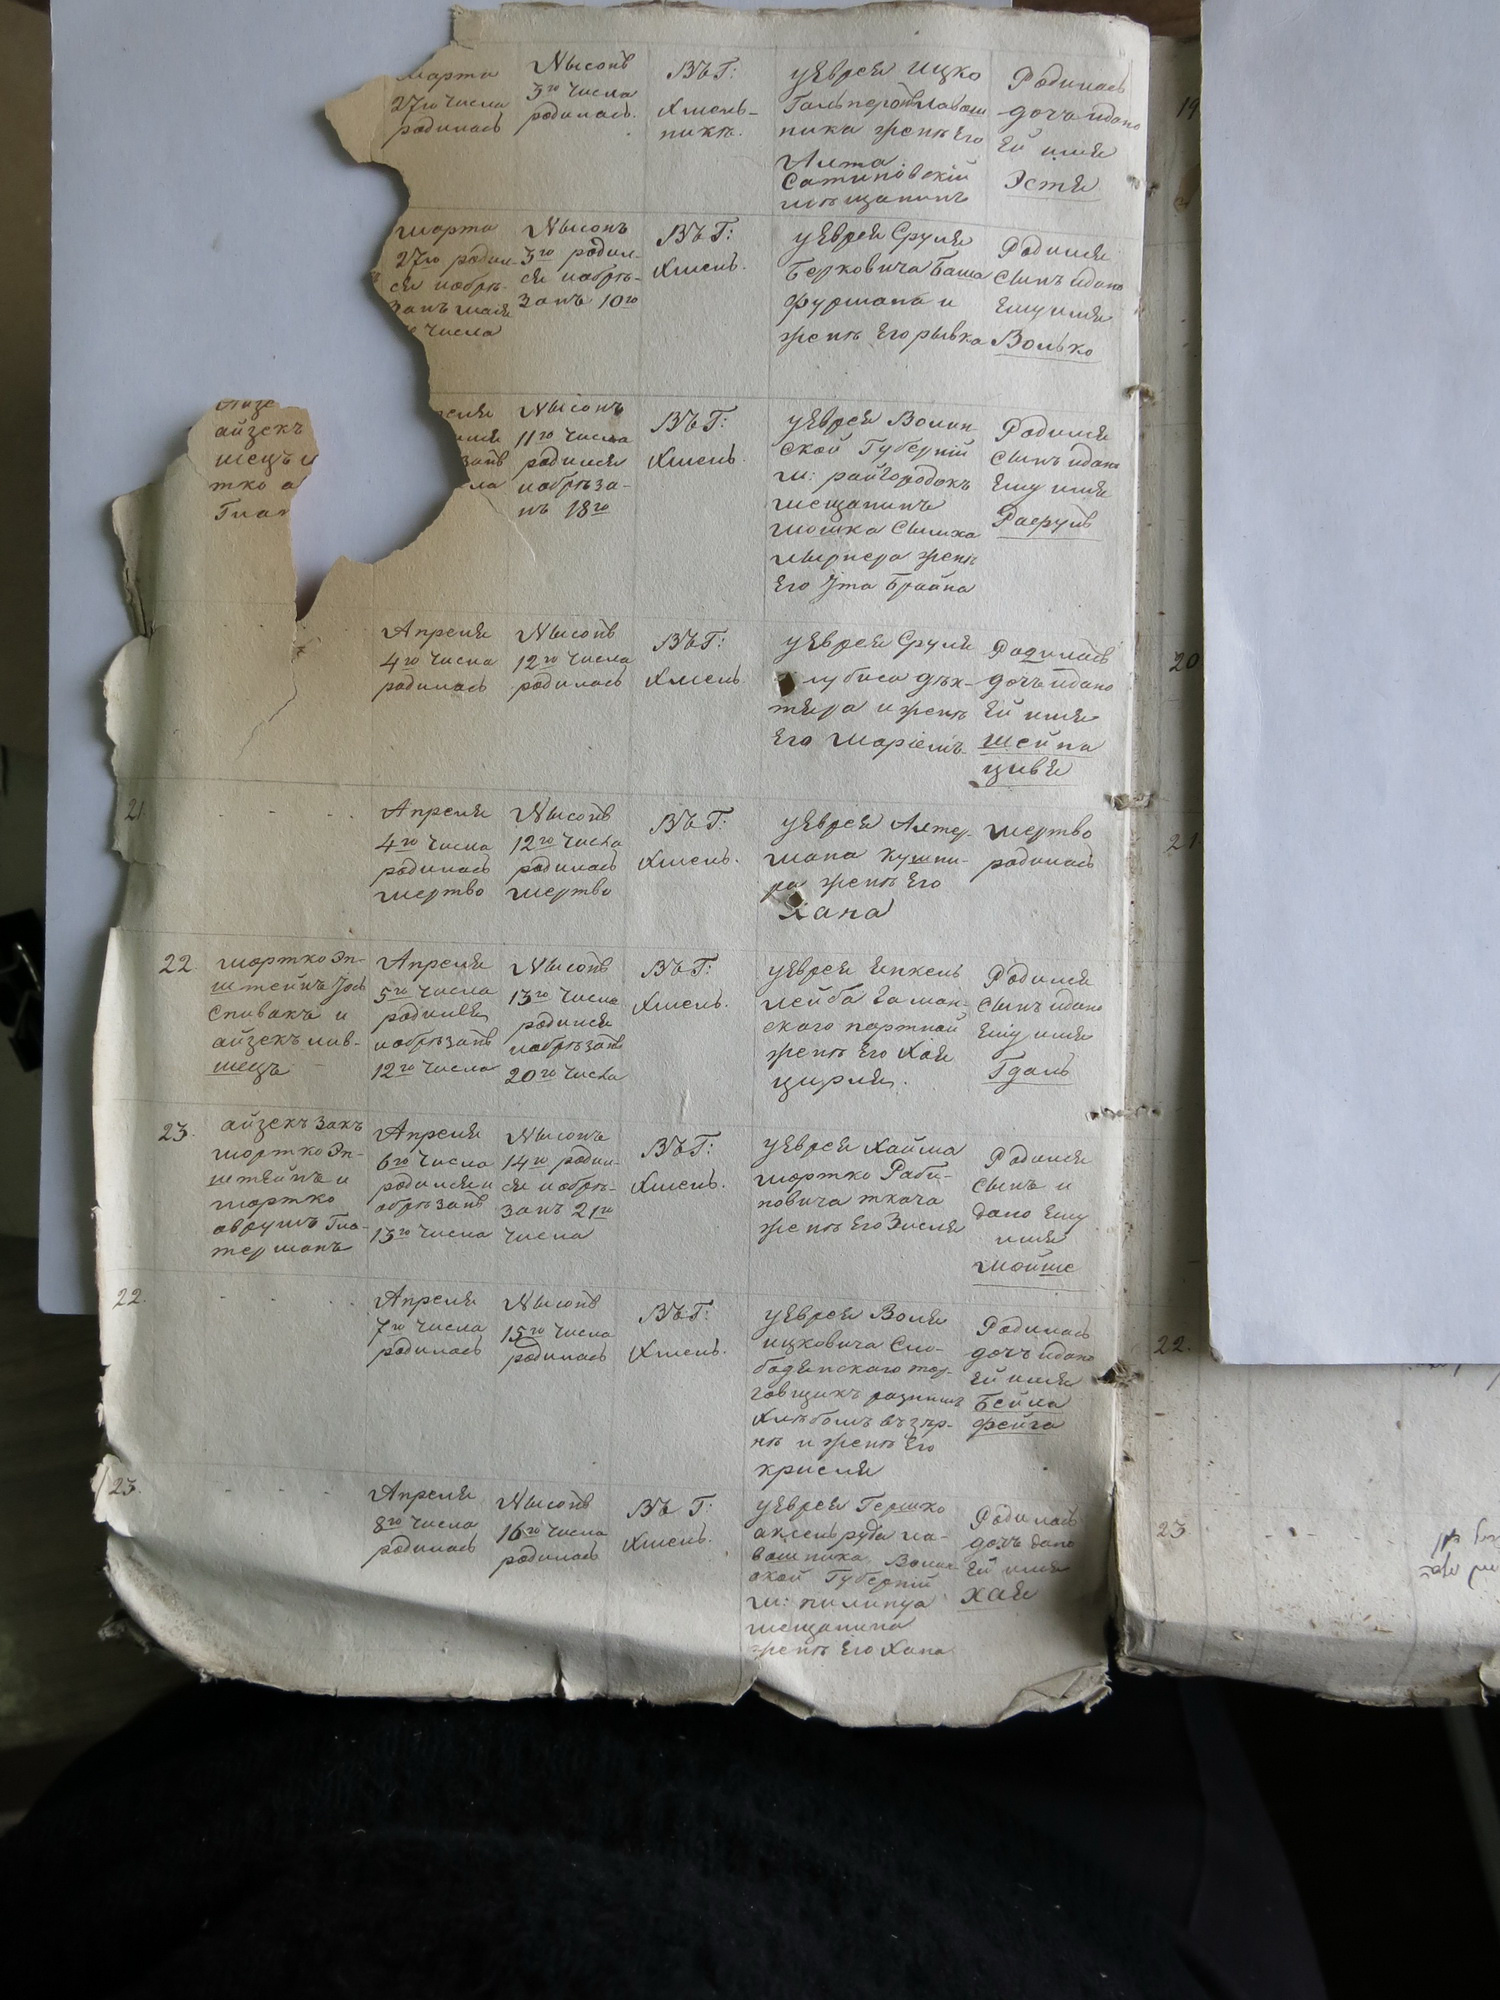 Марта
27го числа
родилась
Нысонъ
3го числа
родилась.
ВЪ Г:
Хмель-
никѣ.
У Еврея Ицко
Гальперонъ лавош
ника женѣ Его
Алта
Сатановскій
мѣщанинъ
Родилась
дочь идано
Ей имя
Эстя
19
Марта
27го родил-
ся иобрѣ-
занъ мая
числа
Нысонъ
3го родил-
ся иобрѣ-
занъ 10го
ВЪ Г:
Хмель.
У Еврея Сруля
Берковича Баша
фурмана и
женѣ Его рывка
Родился
сынъ идано
Ему имя
Волько
айзекъ
мецъ и
тко а
Глат
Нысонъ
11го числа
родился
иобрѣза-
нъ 18го
ВЪ Г:
Хмель.
У Еврея Волин-
ской Губерній
м: райгородокъ
мещанинъ
мошка Сымха
женѣ
Его Ута Брайна
Родился
сынъ идано
Ему имя
Апреля
4го числа
родилась
Нысонъ
12го числа
родилась
ВЪ Г:
Хмель.
У Еврея Сруля
лубиса дѣх-
тяра и женѣ
Его Маріемъ
Родилась
дочъ идано
Ей имя
Шейна
цивя
20
21.
Апреля
4го числа
родилась
мертво
Нысонъ
12го числа
родилась
мертво
ВЪ Г:
Хмель.
У Еврея Алтер-
мана Кушни-
ра женѣ Его
Хана
мертво
родилась
21
22.
мортко Эп-
штейнъ Јось
Спивакъ и
айзекъ лив-
шецъ
Апреля
5го числа
родился
иобрѣзанъ
12го числа
Нысонъ
13го числа
родился
иобрѣзанъ
20го числа
ВЪ Г:
Хмель.
У Еврея Янкель
лейба Гаман-
ского портной
женѣ Его Хая
цирля.
Родился
сынъ идано
Ему имя
Гдаль
23.
айзекъ Закъ
мортко Эп-
штейнъ и
мортко
аврумъ Гла-
терманъ
Апреля
6го числа
родился и
обрѣзанъ
13го числа
Нысонъ
14го родил-
ся иобрѣ-
занъ 21го
числа
ВЪ Г:
Хмель.
У Еврея Хаима
мортко Раби-
новича ткача
женѣ Его Зисля
Родился
сынъ и
дано Ему
имя
мойше
22.
Апреля
7го числа
родилась
Нысонъ
15го числа
родилась
ВЪ Г:
Хмель.
У Еврея Воля
ицковича Сло-
бодянского тор-
говщикъ разнимъ
Хлѣбомъ въ зѣр-
нѣ и женѣ Его
крисля
Родилась
дочъ идано
Ей имя
Бейла
фейга
22.
23.
Апреля
8го числа
родилась
Нысонъ
16го числа
родилась
ВЪ Г:
Хмель.
У Еврея Гершко
аксельруда ла-
вошника Волин-
ской Губерній
м: пилипуа
мещанина
женѣ Его Хана
Родилась
дочъ дано
Ей имя
Хая
23